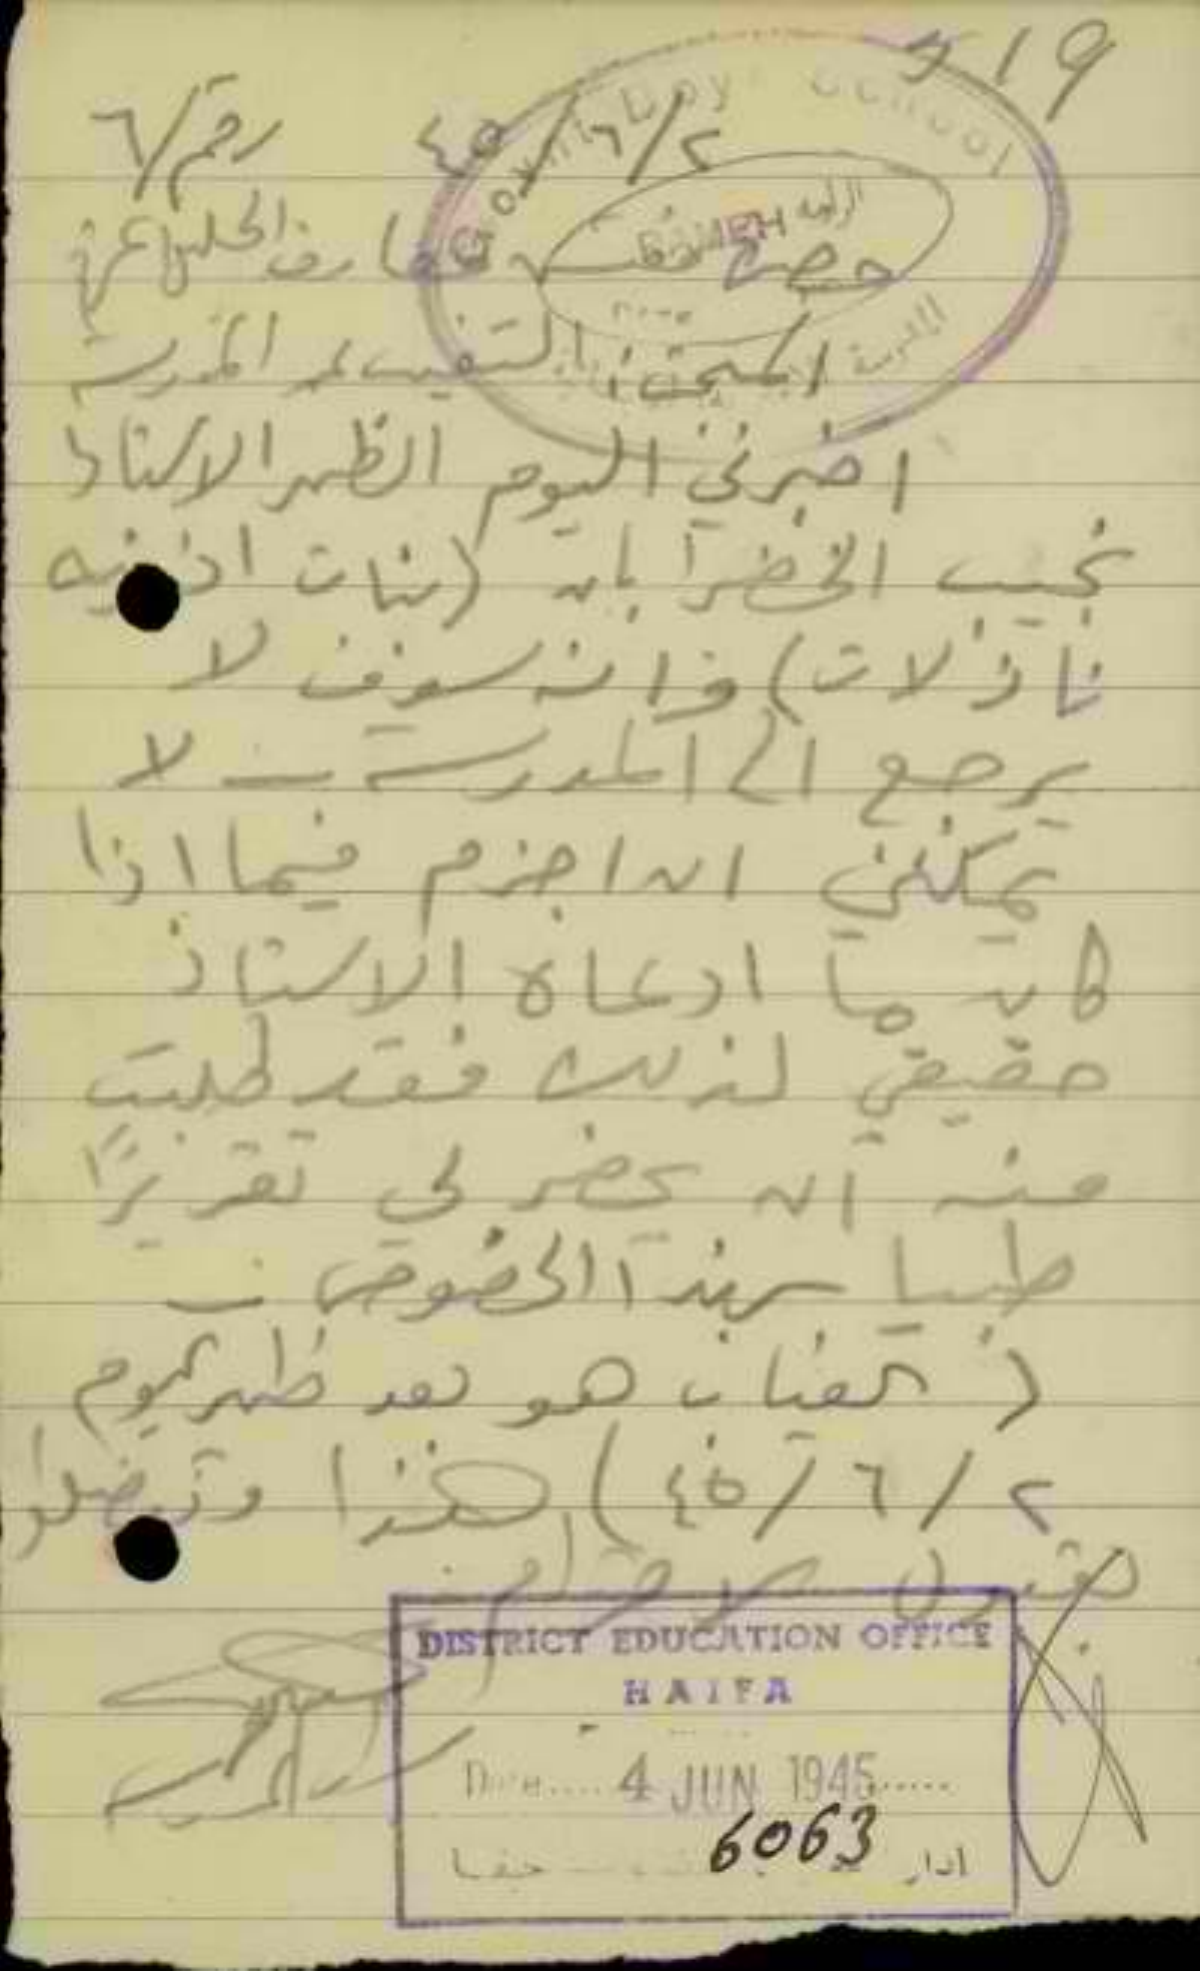 519
رقم/٦ ٢/٦/٤٥
Govnt. Boys School
الرامه
RAMEH
حضرة مفتش معارف الجليل المحترم
المبحث: التغيب عن المدرسة
اخبرني اليوم الظهر الاستاذ
نجيب الخضرا بان (بنات اذنيه
نازلات) وانه سوف لا
يرجع الى المدرسة - لا
يمكنني ان اجزم فيما اذا
كان ما ادعاه الاستاذ
حقيقي لذلك فقد طلبت
منه ان يحضر لي تقريرًا
طبيا بهذا الخصوص -
(الغياب هو بعد ظهر اليوم
٢/٦/٤٥) هذا وتفضلوا
بقبول الاحترام
DISTRICT EDUCATION OFFICE
HAIFA
Date.... 4 JUN 1945......
6063
حيفا